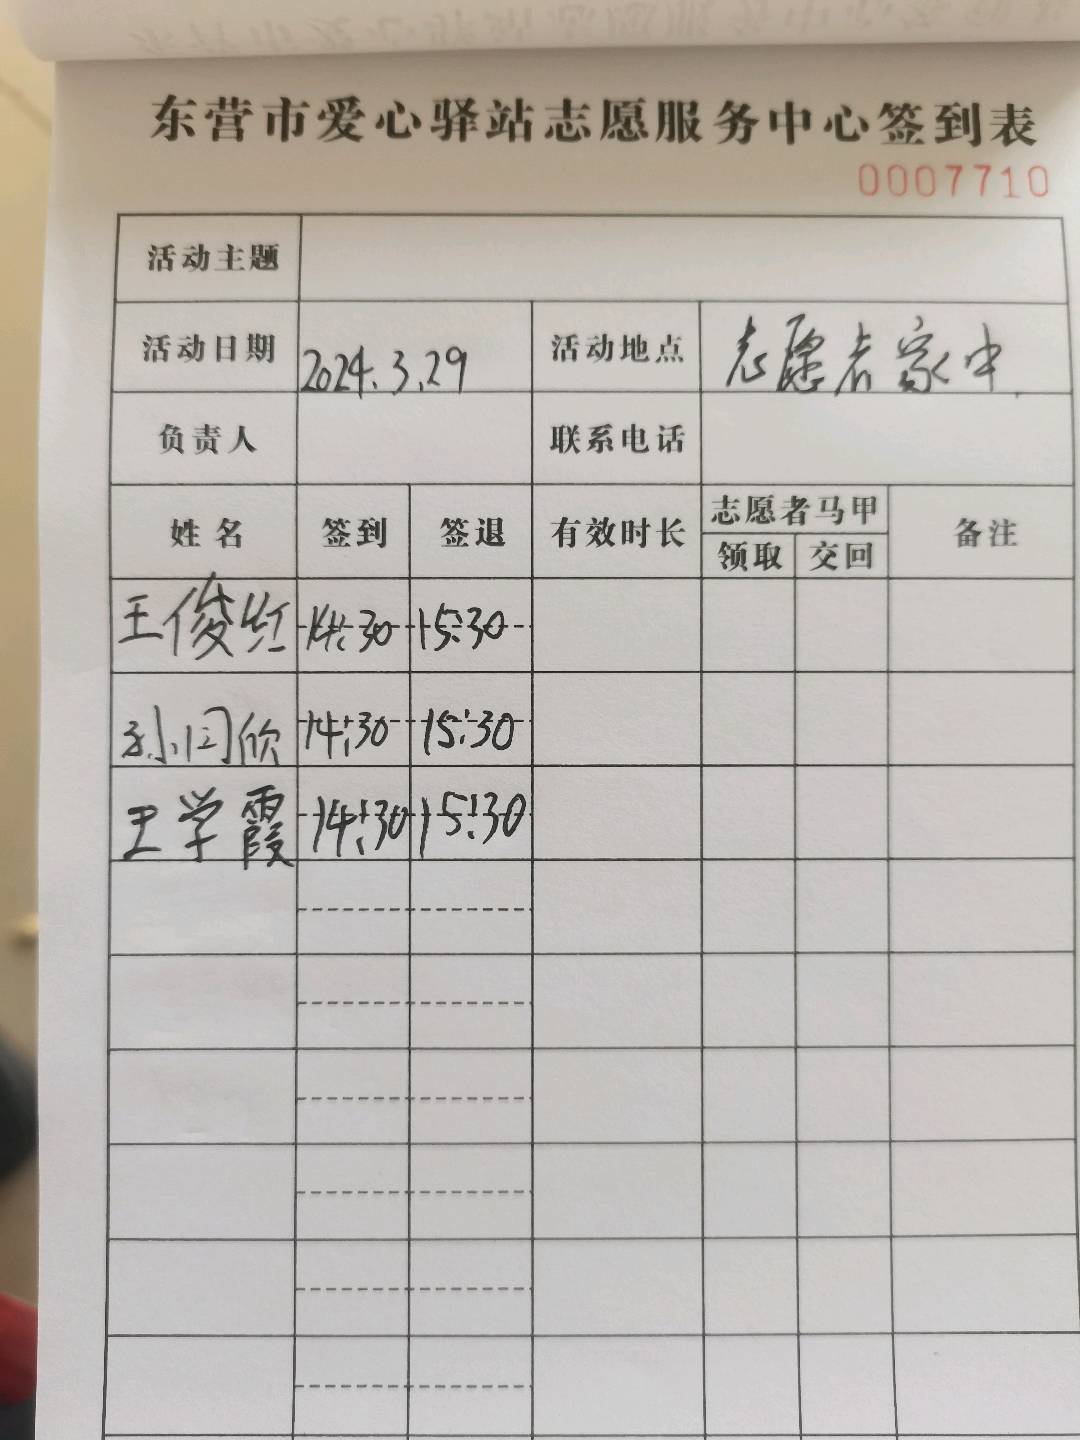 东营市爱心驿站志愿服务中心签到表
0007710
活动主题
活动日期 2024.3.29 活动地点 志愿者家中
负责人 联系电话
姓名 签到 签退 有效时长 志愿者马甲 备注
领取 交回
王俊红 14:30 15:30
孙闰欣 14:30 15:30
王学霞 14:30 15:30